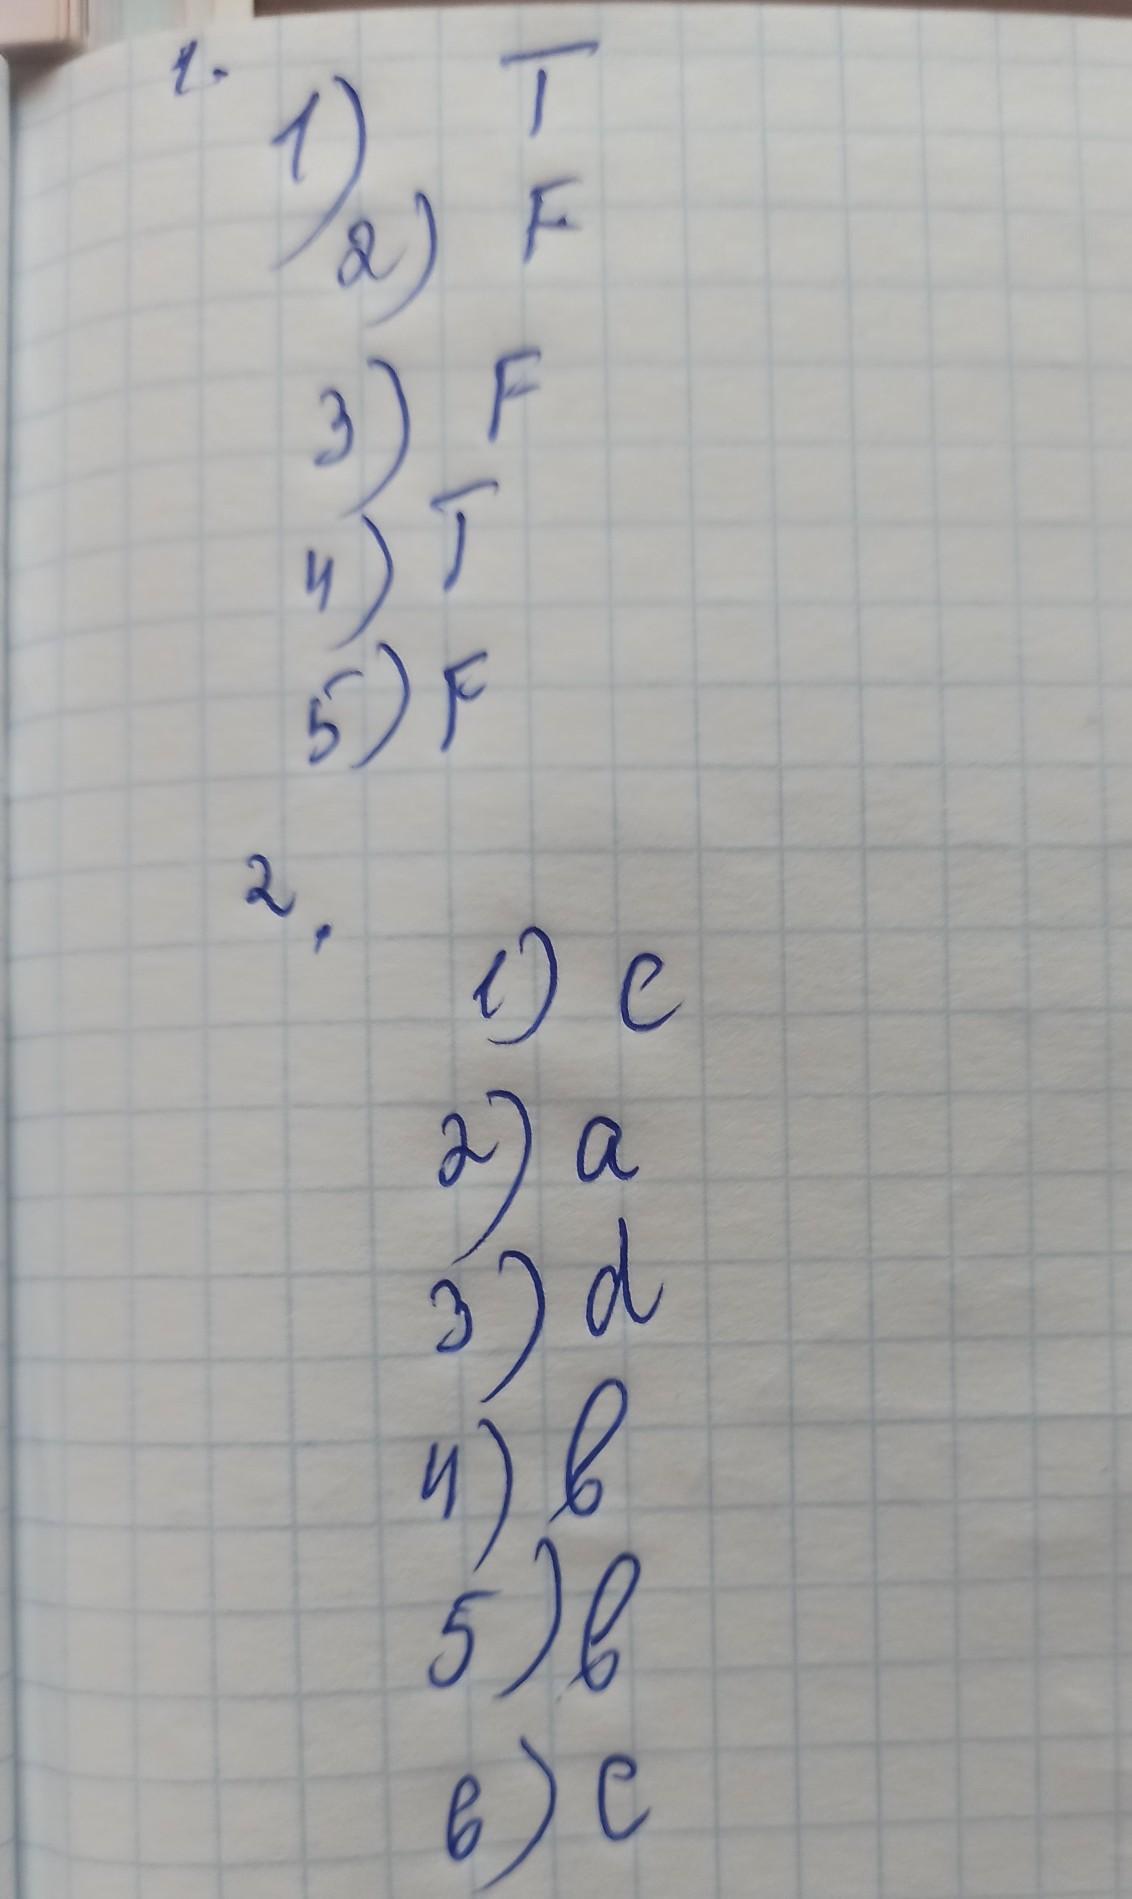 1.
1) T
2) F
3) F
4) T
5) F
2.
1) c
2) a
3) d
4) b
5) b
6) c